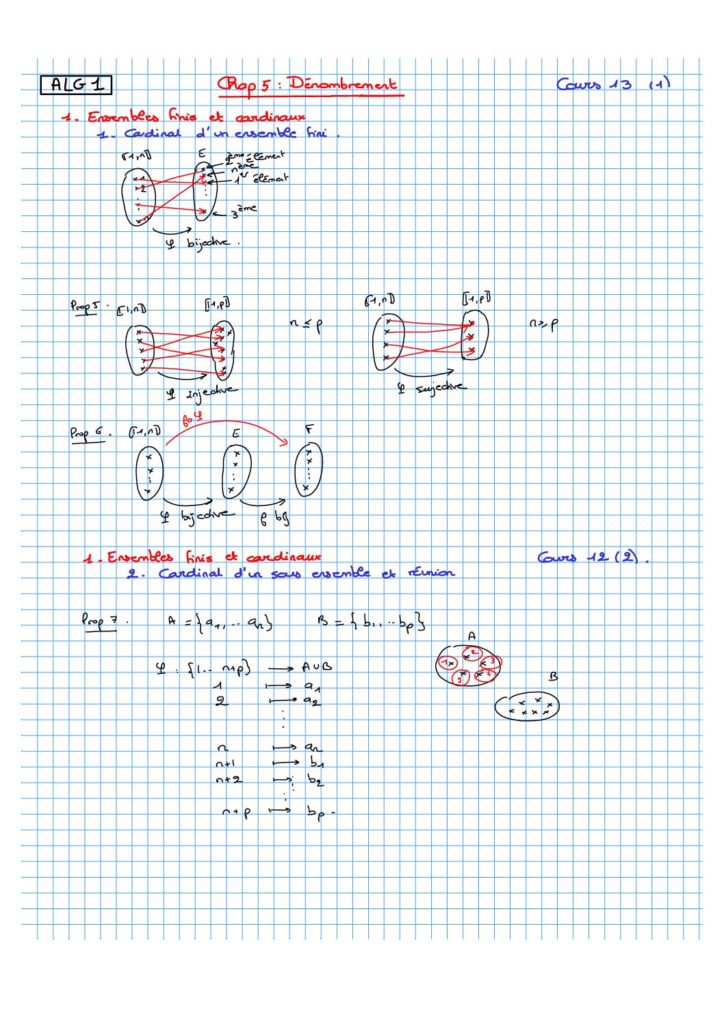 ALG 1 Chap 5 : Dénombrement Cours 13 (1)
1. Ensembles finis et cardinaux
1. Cardinal d'un ensemble fini.
⟦1,n⟧ E 2ème élément
nème
1er élément
1
2
n
3ème
φ bijective.
Prop 5. ⟦1,n⟧ ⟦1,p⟧ n ≤ p ⟦1,n⟧ ⟦1,p⟧ n ≥ p
φ injective φ surjective
f∘φ
Prop 6. ⟦1,n⟧ E F
φ bijective f bij
1. Ensembles finis et cardinaux Cours 12 (2).
2. Cardinal d'un sous ensemble et réunion
Prop 7. A = {a1, .. an} B = {b1, .. bp}
A
φ : {1 .. n+p} → A∪B
B
1 ↦ a1
2 ↦ a2
n ↦ an
n+1 ↦ b1
n+2 ↦ b2
n+p ↦ bp.